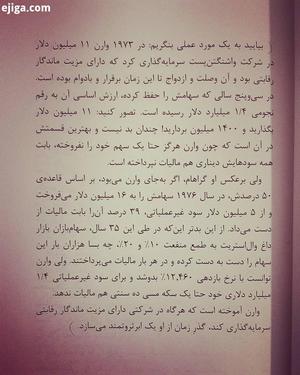 ejiga.com
بیایید به یک مورد عملی بنگریم: در ۱۹۷۳ وارن ۱۱ میلیون دلار
در شرکت واشنگتن‌پست سرمایه‌گذاری کرد که دارای مزیت ماندگار
رقابتی بود و آن وصلت و ازدواج تا این زمان برقرار و بادوام بوده است.
در سی‌وپنج سالی که سهامش را حفظ کرده، ارزش اساسی آن به رقم
نجومی ۱/۴ میلیارد دلار رسیده است. تصور کنید: ۱۱ میلیون دلار
بگذارید و ۱۴۰۰ میلیون بردارید! چندان بد نیست و بهترین قسمتش
در آن است که چون وارن هرگز حتا یک سهم خود را نفروخته، بابت
همه سودهایش دیناری هم مالیات نپرداخته است.
ولی برعکس او گراهام، اگر به‌جای وارن می‌بود، بر اساس قاعده‌ی
۵۰ درصدش، در سال ۱۹۷۶ سهامش را به ۱۶ میلیون دلار می‌فروخت
و از ۵ میلیون دلار سود غیرعملیاتی، ۳۹ درصد آن‌را بابت مالیات از
دست می‌داد. از این بدتر این‌که در طی این ۳۵ سال، سهام‌بازان بازار
داغ وال‌استریت به طمع منفعت ۱۰٪ و ۲۰٪، چه بسا هزاران بار این
سهام را دست به دست کرده و در هر بار مالیات می‌پرداختند. ولی وارن
توانست با نرخ بازدهی ۱۲،۴۶۰٪ بدوشد و برای سود غیرعملیاتی ۱/۴
میلیارد دلاری خود حتا یک سکه مسی ده سنتی هم مالیات ندهد.
وارن آموخته است که هرگاه در شرکتی دارای مزیت ماندگار رقابتی
سرمایه‌گذاری کند، گذر زمان از او یک ابرثروتمند می‌سازد.